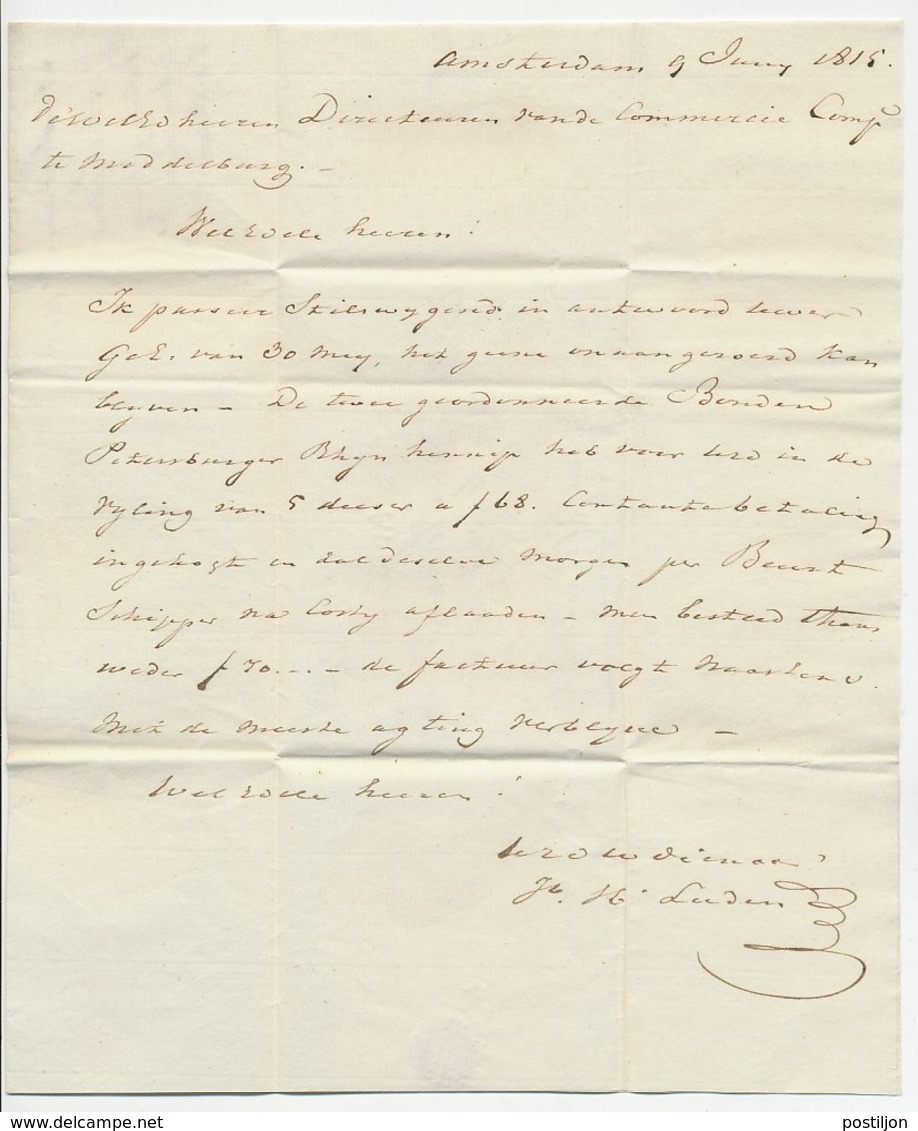 Amsterdam 9 Juny 1815.
de WelEd heeren Directeuren van de Commercie Comp
te Middelburg. -
WelEdele heeren!
Ik passeer Stilswygend in antwoord uwer
GeE. van 30 Mey, het geene onaangeroerd kan
blyven - De twee geordonneerde Bonden
Petersburger Rhyn hennip heb voor UEd in de
vyling van 5 deeser a f 68. Contante betaling
ingekogt en zal deselve morgen per Beurt
Schipper na Costy aflaaden - men besteed thans
weder f 70.-.- - de factuur volgt
Met de meeste agting verblyve -
WelEdele heeren!
UEd dw dienaar
Jb. Hk Luden
postiljon